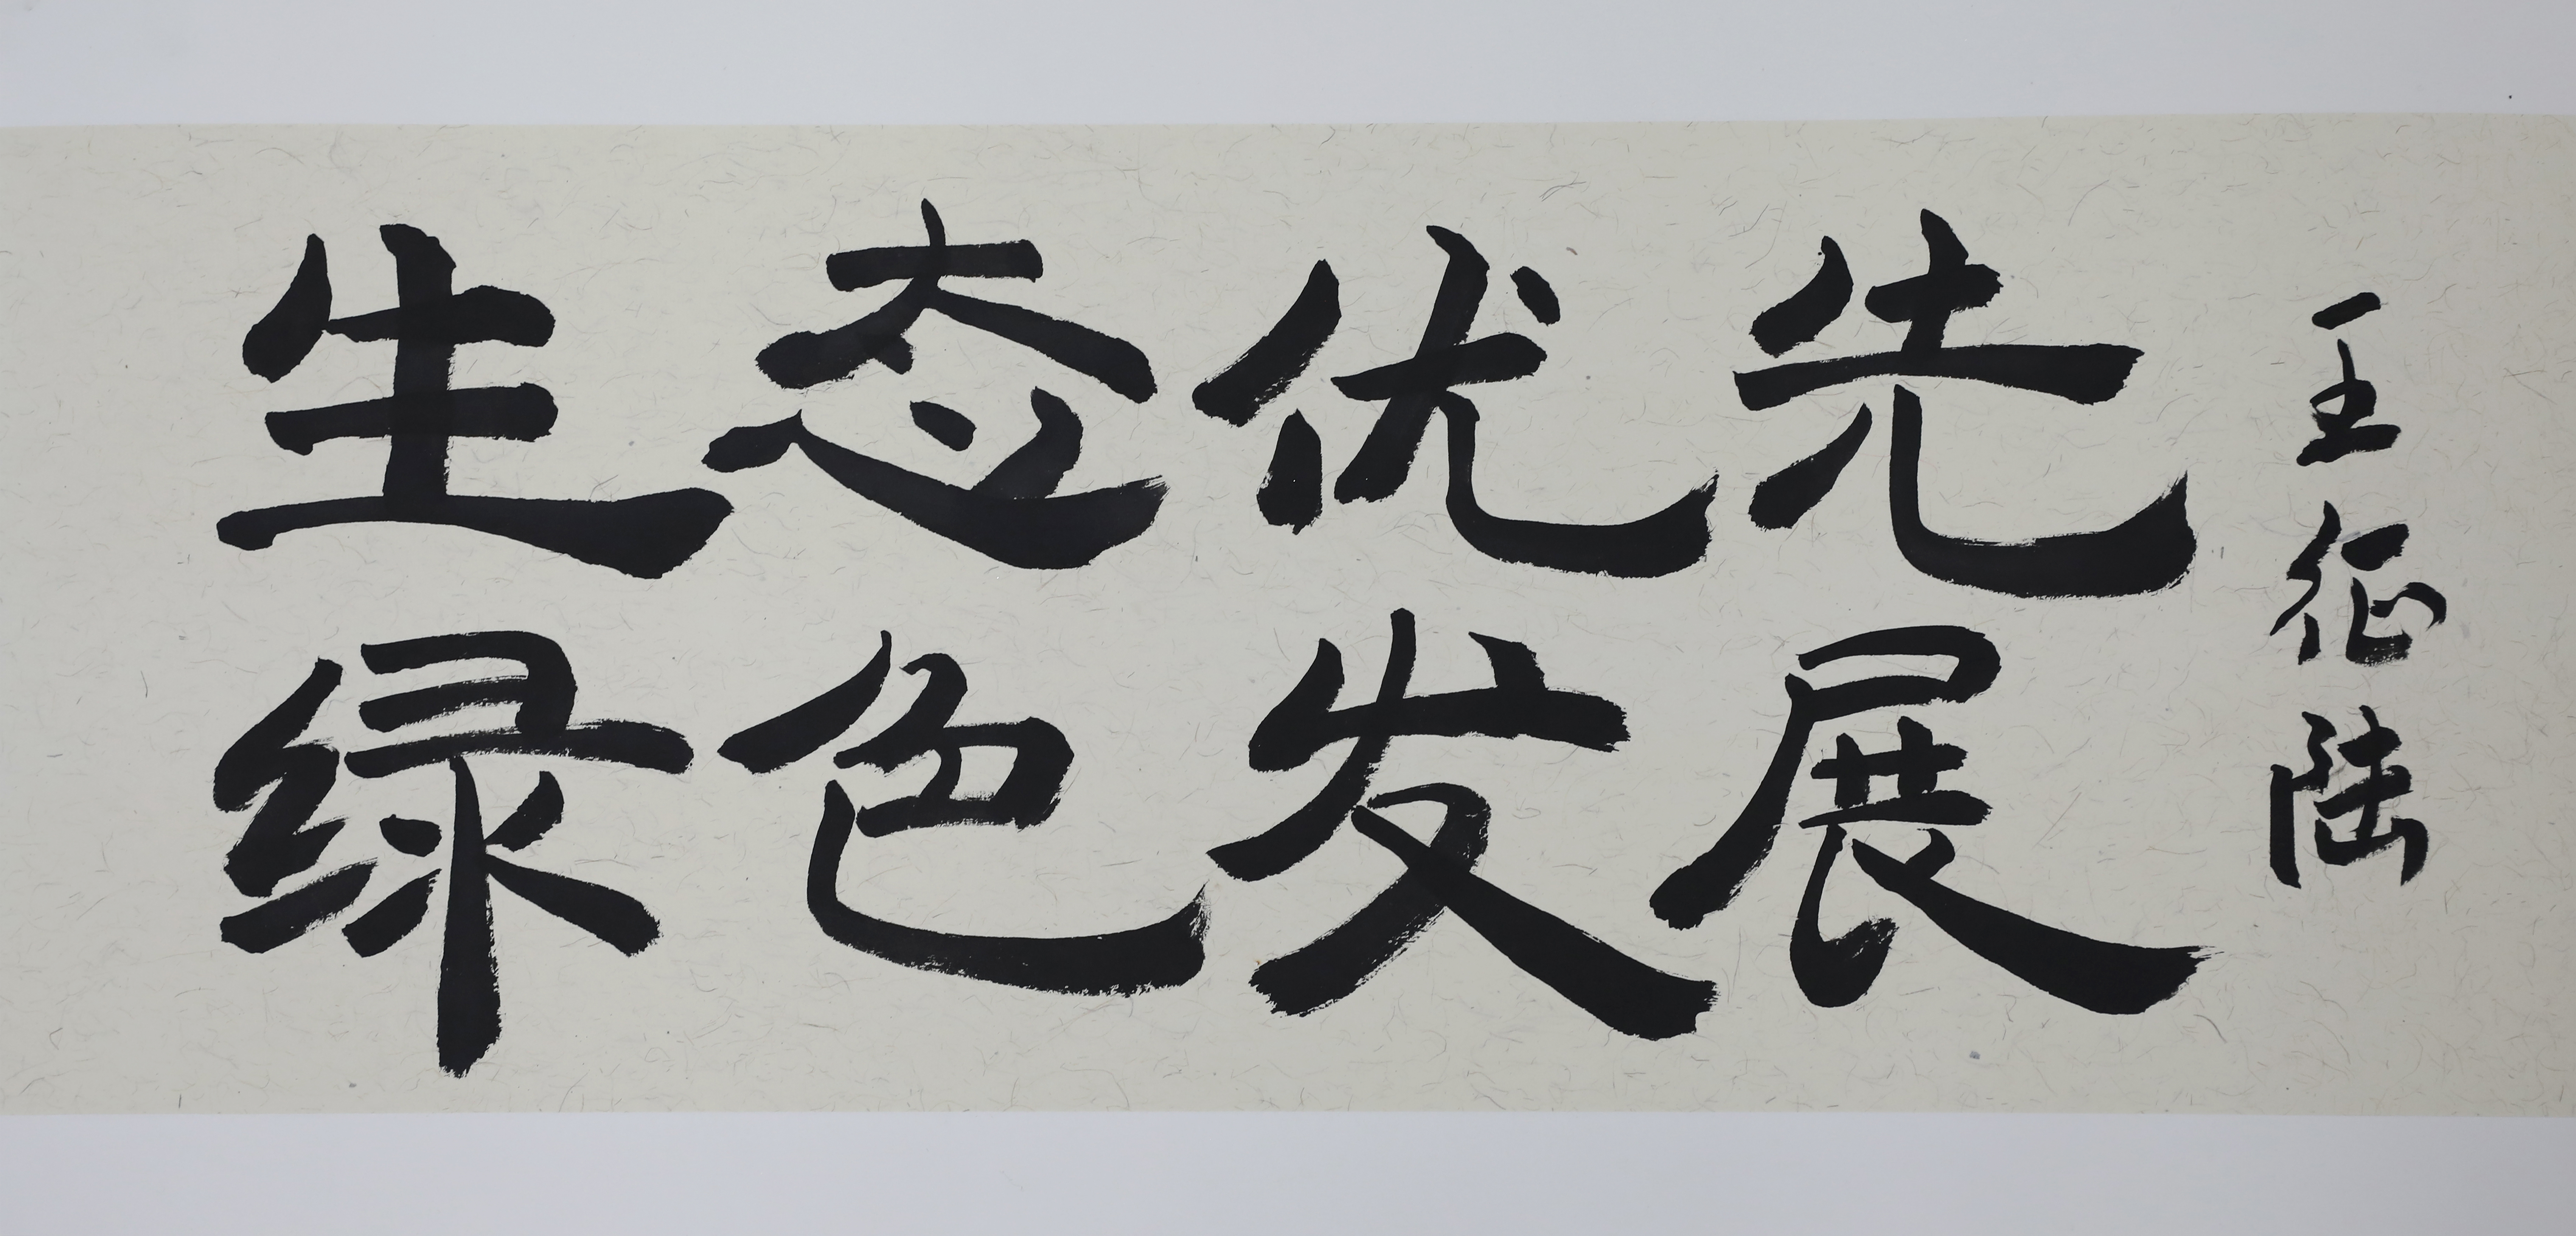 生态优先
绿色发展
王征陆